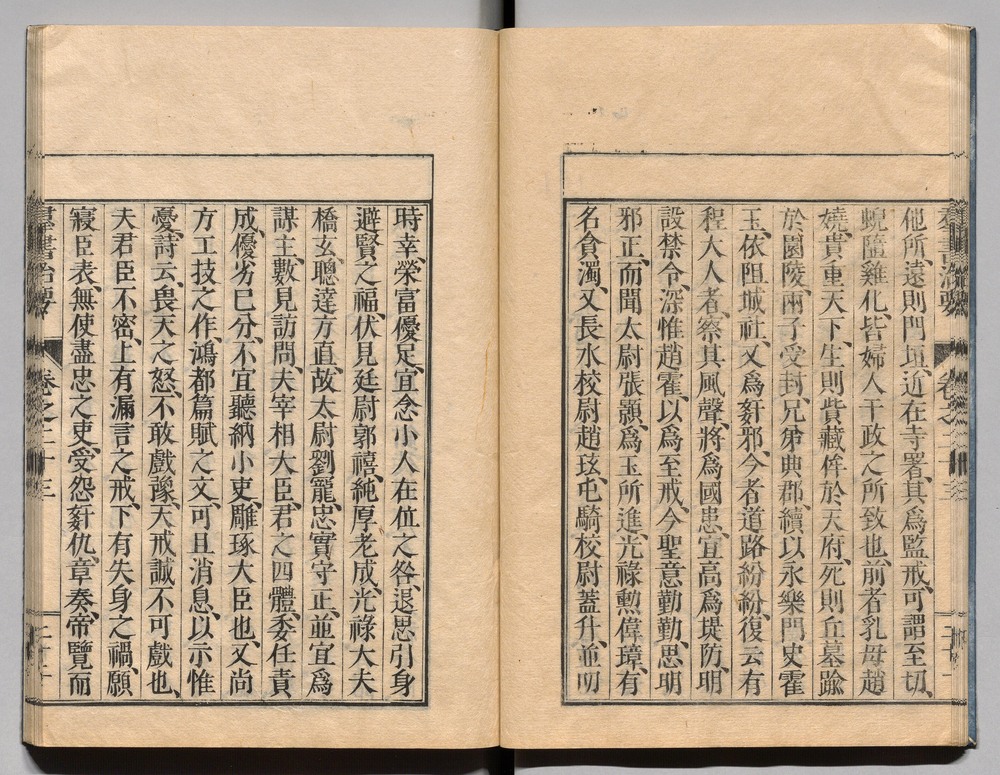 群書治要 卷之二十三
他所、遠則門垣、近在寺署、其爲監戒、可謂至切、
蜺墮雞化、皆婦人干政之所致也、前者乳母趙
嬈、貴重天下、生則貲藏侔於天府、死則丘墓踰
於園陵、兩子受封、兄弟典郡、續以永樂門史霍
玉、依阻城社、又爲姧邪、今者道路紛紛、復云有
程大人者、察其風聲、將爲國患、宜高爲堤防、明
設禁令、深惟趙霍、以爲至戒、今聖意勤勤、思明
邪正、而聞太尉張顥、爲玉所進、光祿勲偉璋、有
名貪濁、又長水校尉趙玹、屯騎校尉蓋升、並叨
時幸、榮富優足、宜念小人在位之咎、退思引身
避賢之福、伏見廷尉郭禧、純厚老成、光祿大夫
橋玄、聰達方直、故太尉劉寵、忠實守正、並宜爲
謀主、數見訪問、夫宰相大臣、君之四體、委任責
成、優劣已分、不宜聽納小吏、雕琢大臣也、又尚
方工技之作、鴻都篇賦之文、可且消息、以示惟
憂、詩云、畏天之怒、不敢戲豫、天戒誠不可戲也、
夫君臣不密、上有漏言之戒、下有失身之禍、願
寢臣表、無使盡忠之吏、受怨姧仇、章奏、帝覽而
羣書治要 卷之二十三